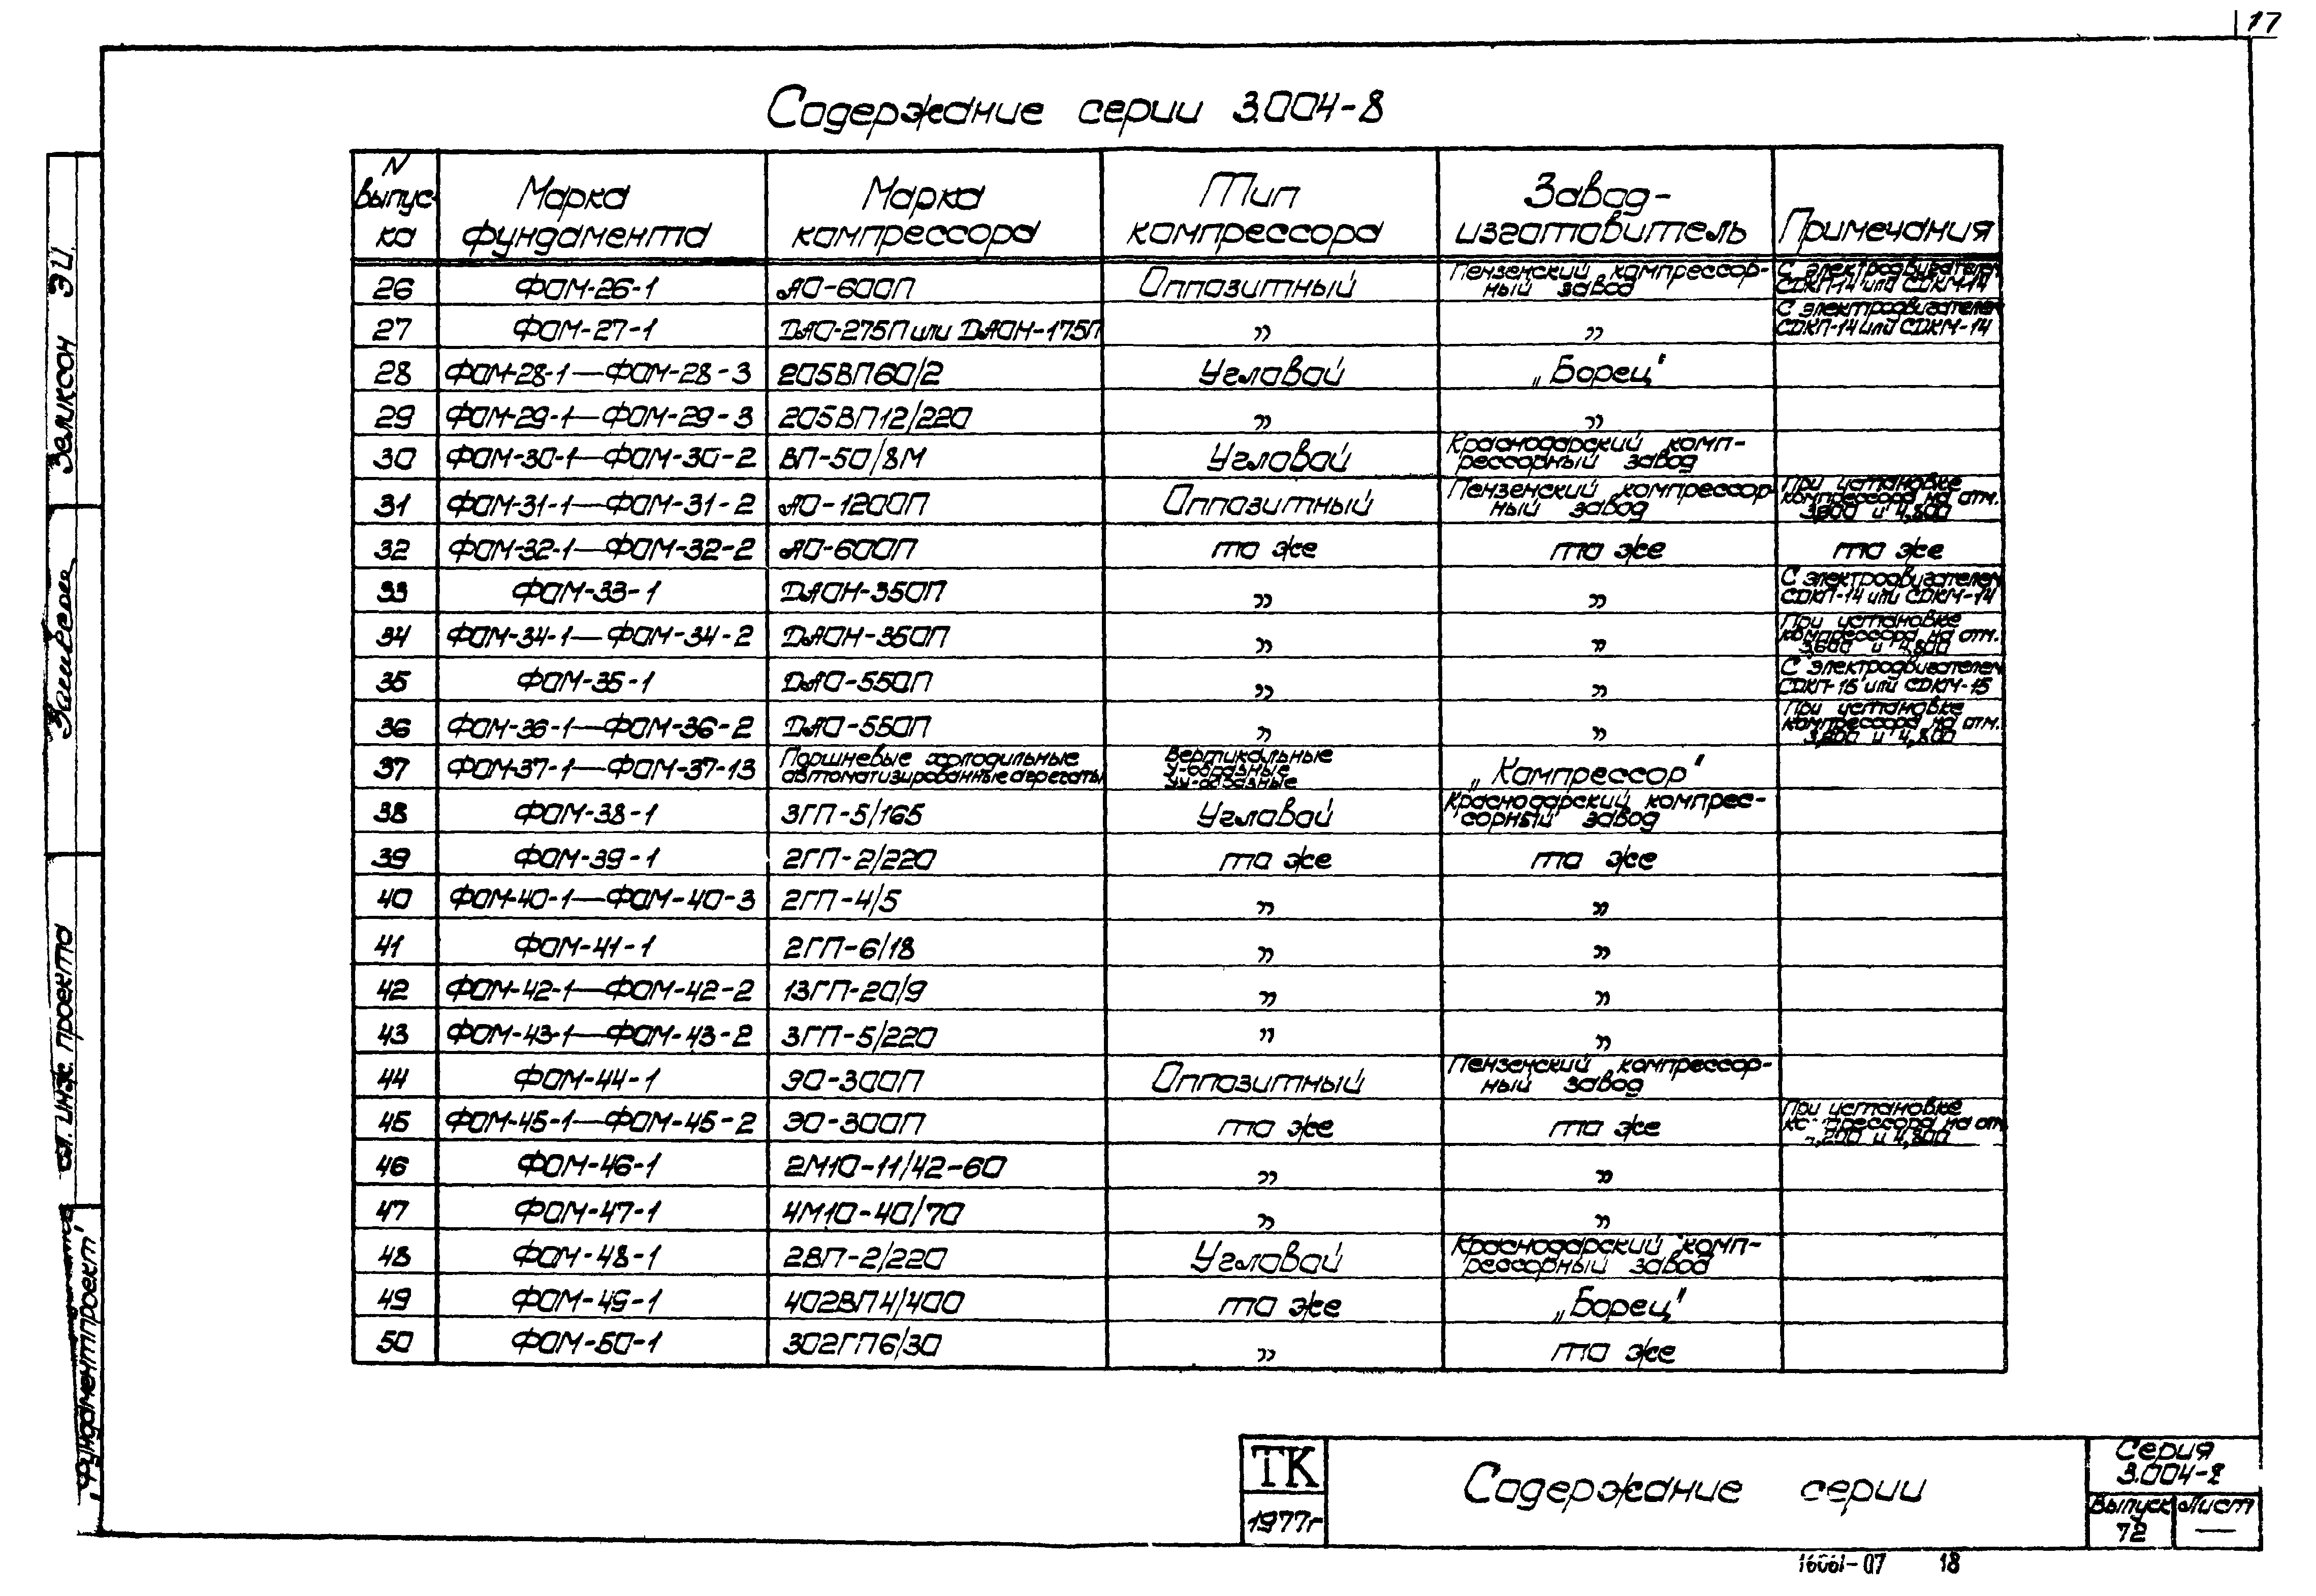 17
Содержание серии 3.004-8
N выпус- ка | Марка фундамента | Марка компрессора | Тип компрессора | Завод- изготовитель | Примечания
26 | ФОМ-26-1 | АО-600П | Оппозитный | Пензенский компрессор- ный завод | С электродвигателем СДКП-14 или СДКМ-14
27 | ФОМ-27-1 | ДАО-275П или ДАОН-175П | „ | „ | С электродвигателем СДКП-14 или СДКМ-14
28 | ФОМ-28-1—ФОМ-28-3 | 205ВП60/2 | Угловой | „Борец"
29 | ФОМ-29-1—ФОМ-29-3 | 205ВП12/220 | „ | „
30 | ФОМ-30-1—ФОМ-30-2 | ВП-50/8М | Угловой | Краснодарский комп- рессорный завод
31 | ФОМ-31-1—ФОМ-31-2 | АО-1200П | Оппозитный | Пензенский компрессор- ный завод | При установке компрессора на отм. 3,600 и 4,800
32 | ФОМ-32-1—ФОМ-32-2 | АО-600П | то же | то же | то же
33 | ФОМ-33-1 | ДАОН-350П | „ | „ | С электродвигателем СДКП-14 или СДКМ-14
34 | ФОМ-34-1—ФОМ-34-2 | ДАОН-350П | „ | „ | При установке компрессора на отм. 3,600 и 4,800
35 | ФОМ-35-1 | ДАО-550П | „ | „ | С электродвигателем СДКП-15 или СДКМ-15
36 | ФОМ-36-1—ФОМ-36-2 | ДАО-550П | „ | „ | При установке компрессора на отм. и 4,800
37 | ФОМ-37-1—ФОМ-37-13 | Поршневые холодильные автоматизированные агрегаты | Вертикальные У-образные УУ-образные | „Компрессор"
38 | ФОМ-38-1 | 3ГП-5/165 | Угловой | Краснодарский компрес- сорный завод
39 | ФОМ-39-1 | 2ГП-2/220 | то же | то же
40 | ФОМ-40-1—ФОМ-40-3 | 2ГП-4/5 | „ | „
41 | ФОМ-41-1 | 2ГП-6/18 | „ | „
42 | ФОМ-42-1—ФОМ-42-2 | 13ГП-20/9 | „ | „
43 | ФОМ-43-1—ФОМ-43-2 | 3ГП-5/220 | „ | „
44 | ФОМ-44-1 | ЭО-300П | Оппозитный | Пензенский компрессор- ный завод
45 | ФОМ-45-1—ФОМ-45-2 | ЭО-300П | то же | то же | При установке компрессора на отм и 4,800
46 | ФОМ-46-1 | 2М10-11/42-60 | „ | „
47 | ФОМ-47-1 | 4М10-40/70 | „ | „
48 | ФОМ-48-1 | 2ВП-2/220 | Угловой | Краснодарский комп- рессорный завод
49 | ФОМ-49-1 | 402ВП4/400 | то же | „Борец"
50 | ФОМ-50-1 | 302ГП6/30 | „ | то же
ТК
1977г
Содержание серии
Серия
3.004-8
Выпуск Лист
72 —
16061-07 18
Гл. инж. проекта Заликсон ЭИ.
„Фундаментпроект"